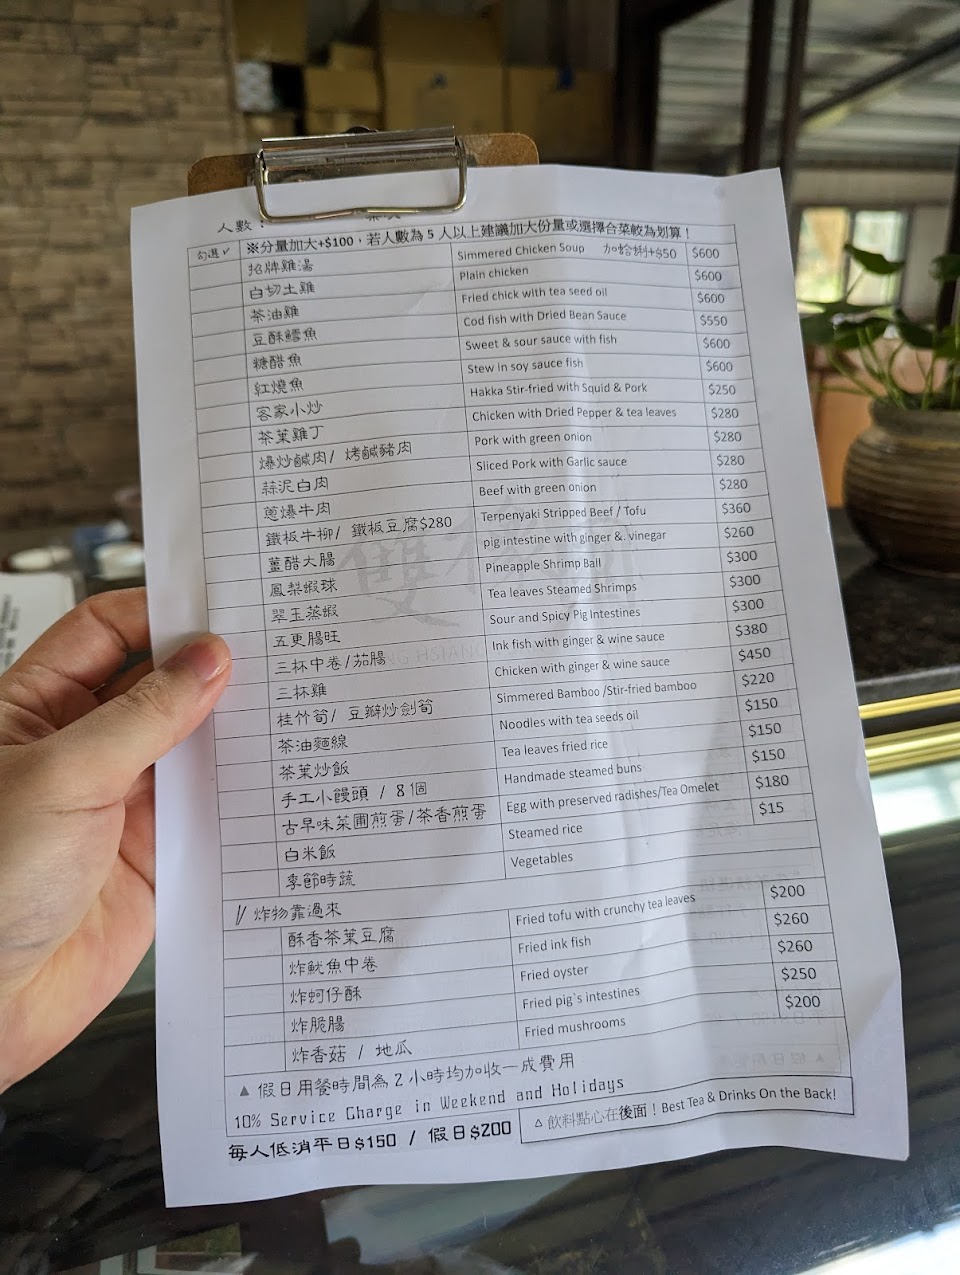 人數：
勾選✓ ※分量加大+$100，若人數為 5 人以上建議加大份量或選擇合菜較為划算！
招牌雞湯 Simmered Chicken Soup 加蛤蜊+$50 $600
白切土雞 Plain chicken $600
茶油雞 Fried chick with tea seed oil $600
豆酥鱈魚 Cod fish with Dried Bean Sauce $550
糖醋魚 Sweet & sour sauce with fish $600
紅燒魚 Stew in soy sauce fish $600
客家小炒 Hakka Stir-fried with Squid & Pork $250
茶葉雞丁 Chicken with Dried Pepper & tea leaves $280
爆炒鹹肉/ 烤鹹豬肉 Pork with green onion $280
蒜泥白肉 Sliced Pork with Garlic sauce $280
蔥爆牛肉 Beef with green onion $280
鐵板牛柳/ 鐵板豆腐$280 Terpenyaki Stripped Beef / Tofu $360
薑醋大腸 pig intestine with ginger &. vinegar $260
鳳梨蝦球 Pineapple Shrimp Ball $300
翠玉蒸蝦 Tea leaves Steamed Shrimps $300
五更腸旺 Sour and Spicy Pig Intestines $300
三杯中卷/茄腸 Ink fish with ginger & wine sauce $380
三杯雞 Chicken with ginger & wine sauce $450
桂竹筍/ 豆瓣炒劍筍 Simmered Bamboo /Stir-fried bamboo $220
茶油麵線 Noodles with tea seeds oil $150
茶葉炒飯 Tea leaves fried rice $150
手工小饅頭 / 8個 Handmade steamed buns $150
古早味菜圃煎蛋/茶香煎蛋 Egg with preserved radishes/Tea Omelet $180
白米飯 Steamed rice $15
季節時蔬 Vegetables
// 炸物靠過來
酥香茶葉豆腐 Fried tofu with crunchy tea leaves $200
炸魷魚中卷 Fried ink fish $260
炸蚵仔酥 Fried oyster $260
炸脆腸 Fried pig`s intestines $250
炸香菇 / 地瓜 Fried mushrooms $200
▲ 假日用餐時間為 2 小時均加收一成費用
10% Service Charge in Weekend and Holidays
每人低消平日$150 / 假日$200
△ 飲料點心在後面！Best Tea & Drinks On the Back!